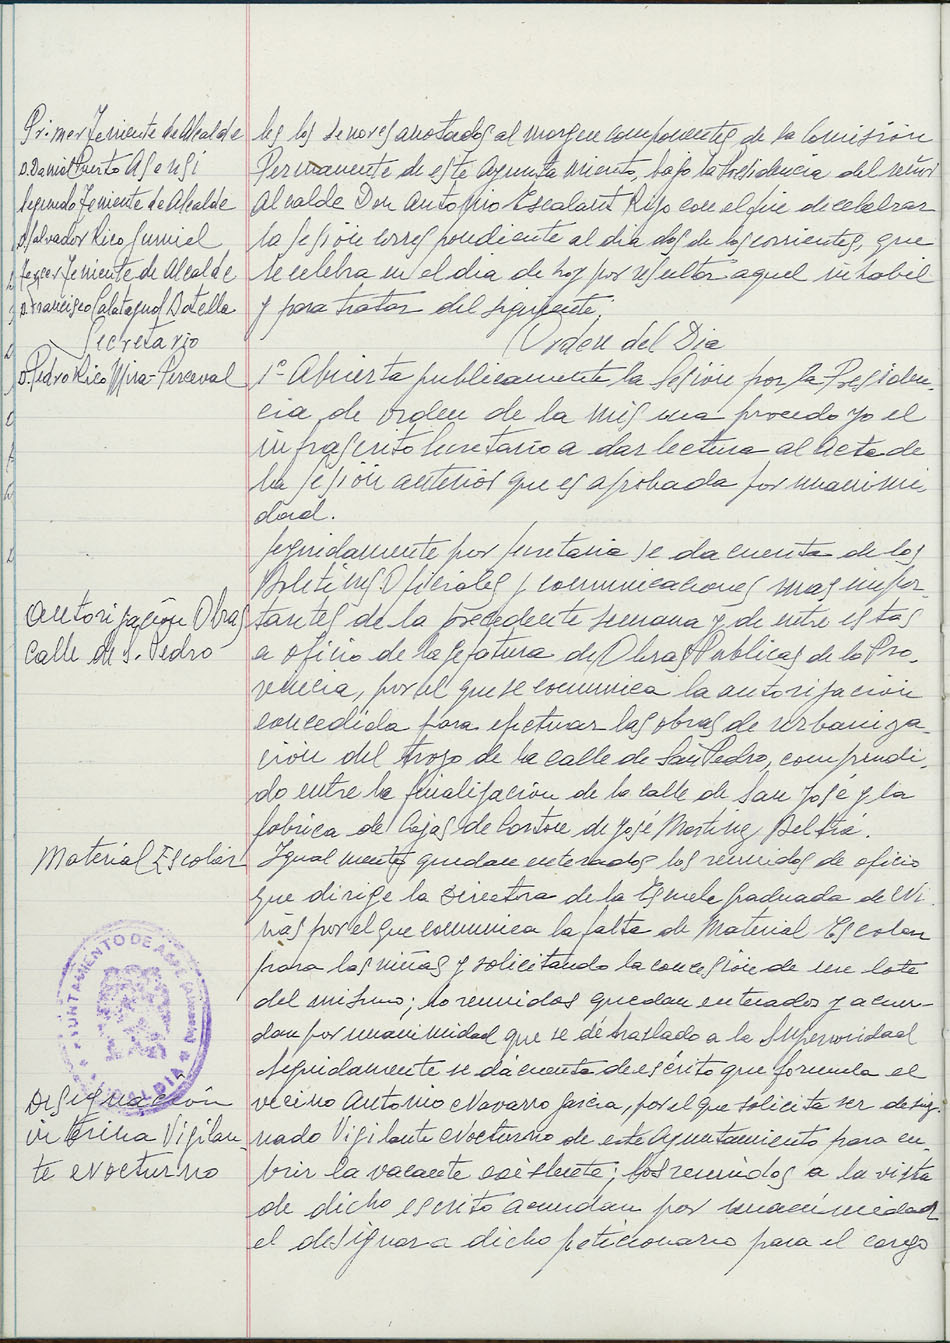 Primer Teniente de Alcalde
D. Daniel Puerto Asensi
Segundo Teniente de Alcalde
D. Salvador Rico Gumiel
Tercer Teniente de Alcalde
D. Francisco Calatayud Botella
Secretario
D. Pedro Rico Mira-Perceval
les los señores anotados al margen componentes de la Comisión
Permanente de este Ayuntamiento, bajo la Presidencia del señor
Alcalde Don Antonio Escalant Rizo con el fin de celebrar
la Sesión correspondiente al dia dos de los corrientes, que
se celebra en el dia de hoy por resultar aquel inhabil
y para tratar del siguiente,
Orden del Dia
1º Abierta publicamente la Sesión por la Presiden-
cia, de orden de la misma procedo yo el
infrascrito Secretario a dar lectura al Acta de
la Sesión anterior que es aprobada por unanimi
dad.
Autorización Obras
calle de S. Pedro
Seguidamente por Secretaria se da cuenta de los
Boletines Oficiales y comunicaciones mas impor-
tantes de la precedente semana y de entre estas
a oficio de la Jefatura de Obras Publicas de la Pro-
vincia, por el que se comunica la autorización
concedida para efectuar las obras de urbaniza-
ción del trozo de la calle de San Pedro, comprendi-
do entre la finalización de la calle de San José y la
fabrica de Cajas de Carton de José Martinez Beltrá.
Material Escolar
Igualmente quedan enterados los reunidos de oficio
que dirige la Directora de la Escuela graduada de Ni-
ñas por el que comunica la falta de Material Escolar
para las niñas y solicitando la concesión de un lote
del mismo; lo reunidos quedan enterados y acuer-
dan por unanimidad que se dé traslado a la Superioridad
AYUNTAMIENTO DE ASPE (ALICANTE)
ALCALDIA
Designación
interina Vigilan-
te Nocturno
Seguidamente se dá cuenta de escrito que formula el
vecino Antonio Navarro García, por el que solicita ser desig-
nado Vigilante Nocturno de este Ayuntamiento para cu-
brir la vacante existente; los reunidos a la vista
de dicho escrito acuerdan por unanimidad
el designar a dicho peticionario para el cargo